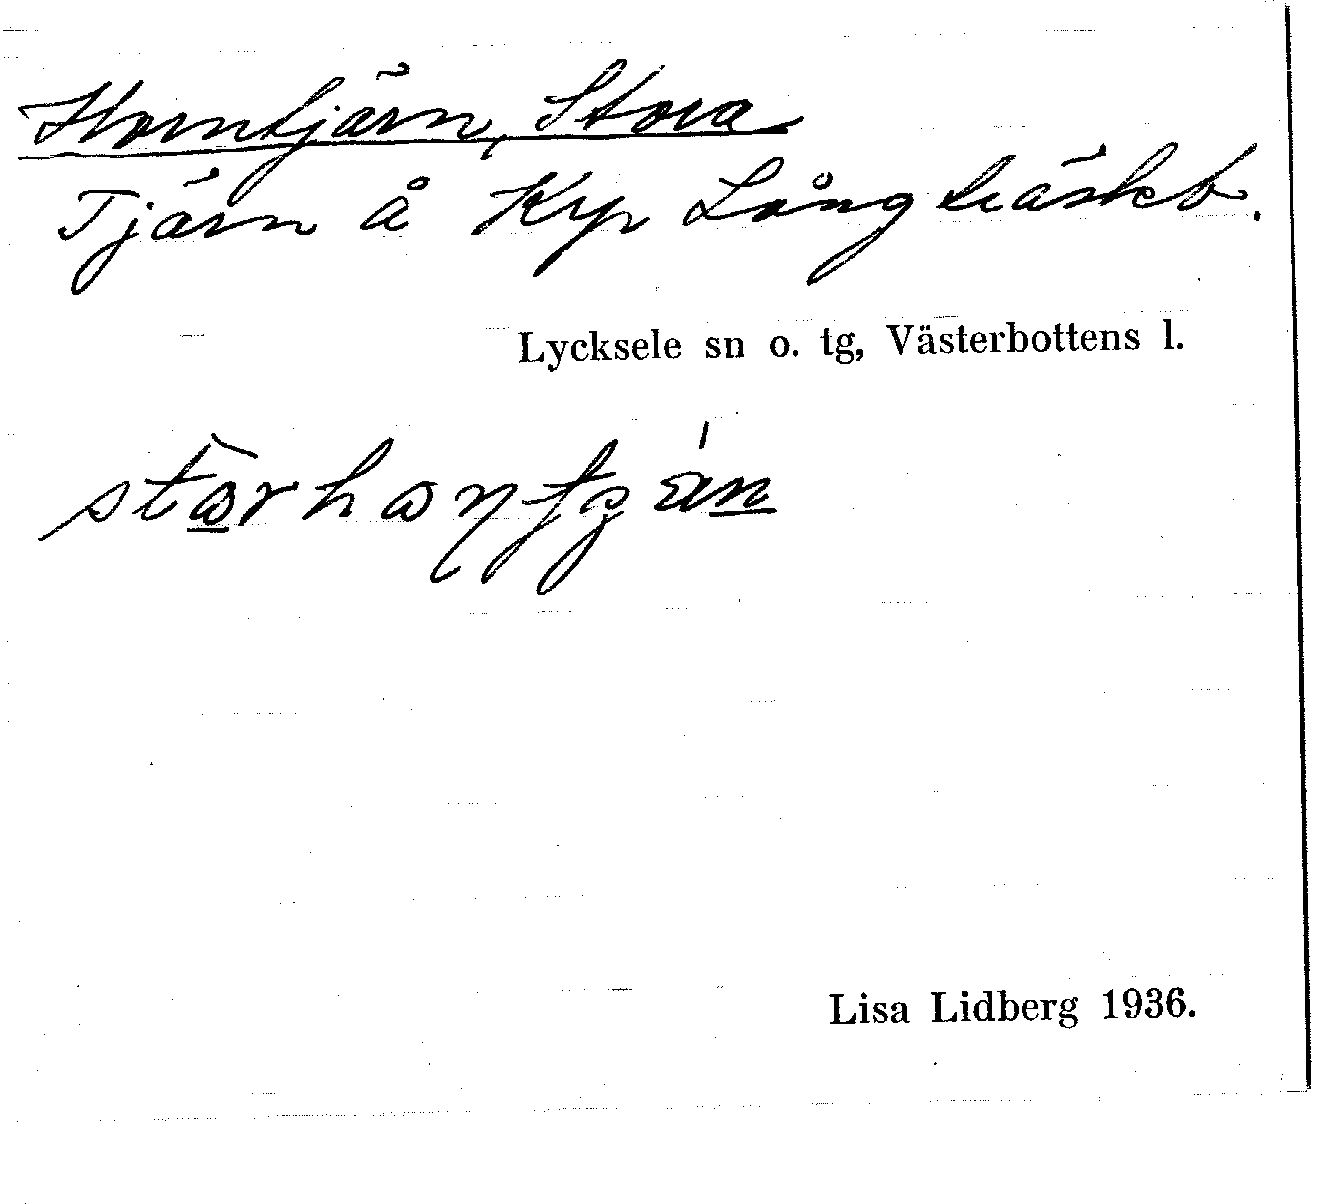 Horntjärn, Stora
Tjärn å Kp Långträskb.
Lycksele sn o. tg, Västerbottens l.
Lisa Lidberg 1936.